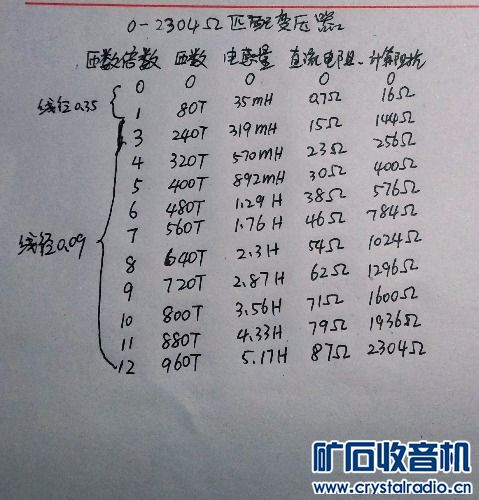 0-2304Ω 匹配变压器
匝数倍数 匝数 电感量 直流电阻 计算阻抗
0 0 0 0 0
线径0.35
1 80T 35mH 0.7Ω 16Ω
3 240T 319mH 15Ω 144Ω
4 320T 570mH 23Ω 256Ω
5 400T 892mH 30Ω 400Ω
6 480T 1.29H 38Ω 576Ω
7 560T 1.76H 46Ω 784Ω
线径0.09
8 640T 2.3H 54Ω 1024Ω
9 720T 2.87H 62Ω 1296Ω
10 800T 3.56H 71Ω 1600Ω
11 880T 4.33H 79Ω 1936Ω
12 960T 5.17H 87Ω 2304Ω
矿石收音机
www.crystalradio.cn